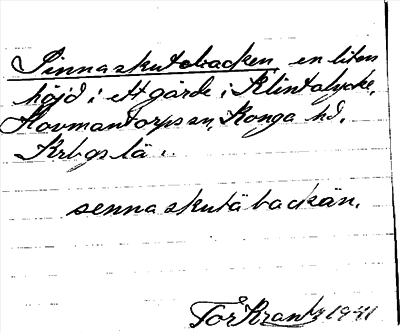 Sinnaskutebacken, en liten
höjd i ett gärde i Klintalycke,
Hovmantorps sn, Konga hd,
Krbgs lä..
sennaskutäbackän.
Tor Krantz 1941